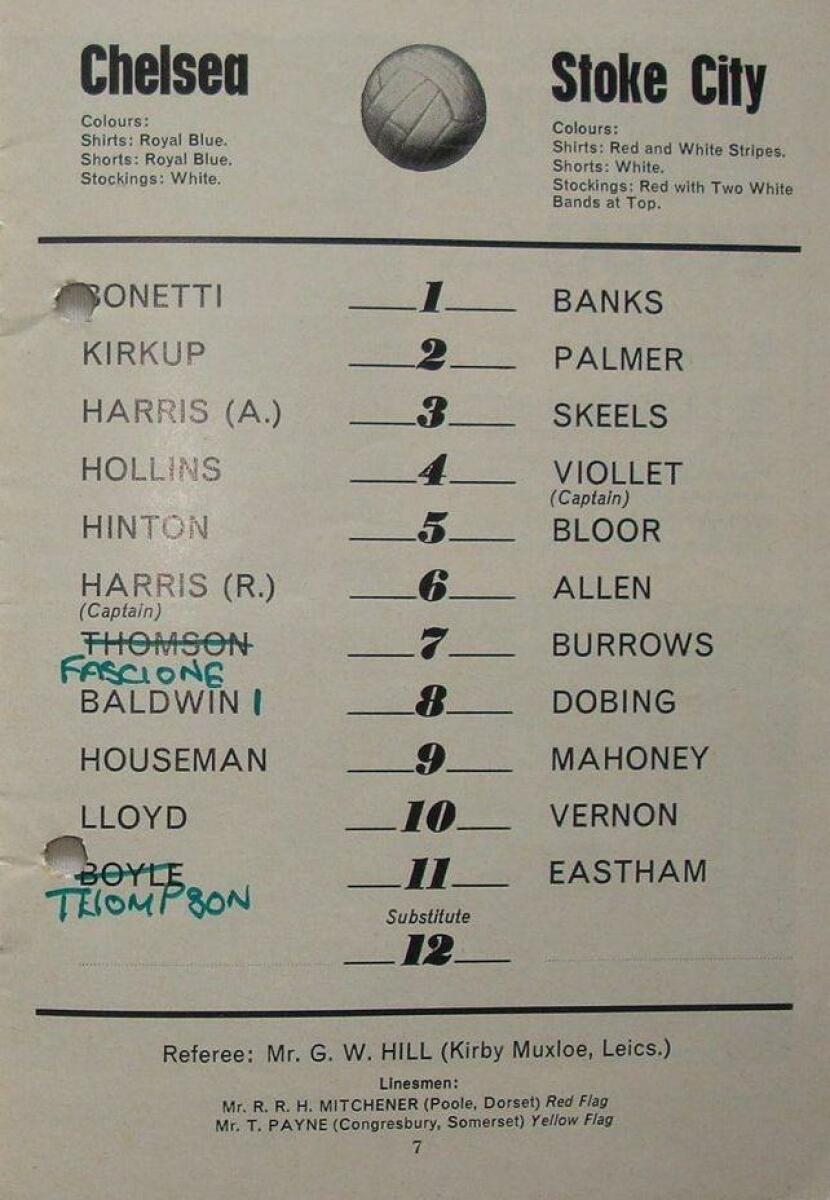 Chelsea
Colours:
Shirts: Royal Blue.
Shorts: Royal Blue.
Stockings: White.
Stoke City
Colours:
Shirts: Red and White Stripes.
Shorts: White.
Stockings: Red with Two White
Bands at Top.
BONETTI 1 BANKS
KIRKUP 2 PALMER
HARRIS (A.) 3 SKEELS
HOLLINS 4 VIOLLET
(Captain)
HINTON 5 BLOOR
HARRIS (R.) 6 ALLEN
(Captain)
THOMSON 7 BURROWS
FASCIONE
BALDWIN 1 8 DOBING
HOUSEMAN 9 MAHONEY
LLOYD 10 VERNON
BOYLE 11 EASTHAM
THOMPSON
Substitute
12
Referee: Mr. G. W. HILL (Kirby Muxloe, Leics.)
Linesmen:
Mr. R. R. H. MITCHENER (Poole, Dorset) Red Flag
Mr. T. PAYNE (Congresbury, Somerset) Yellow Flag
7